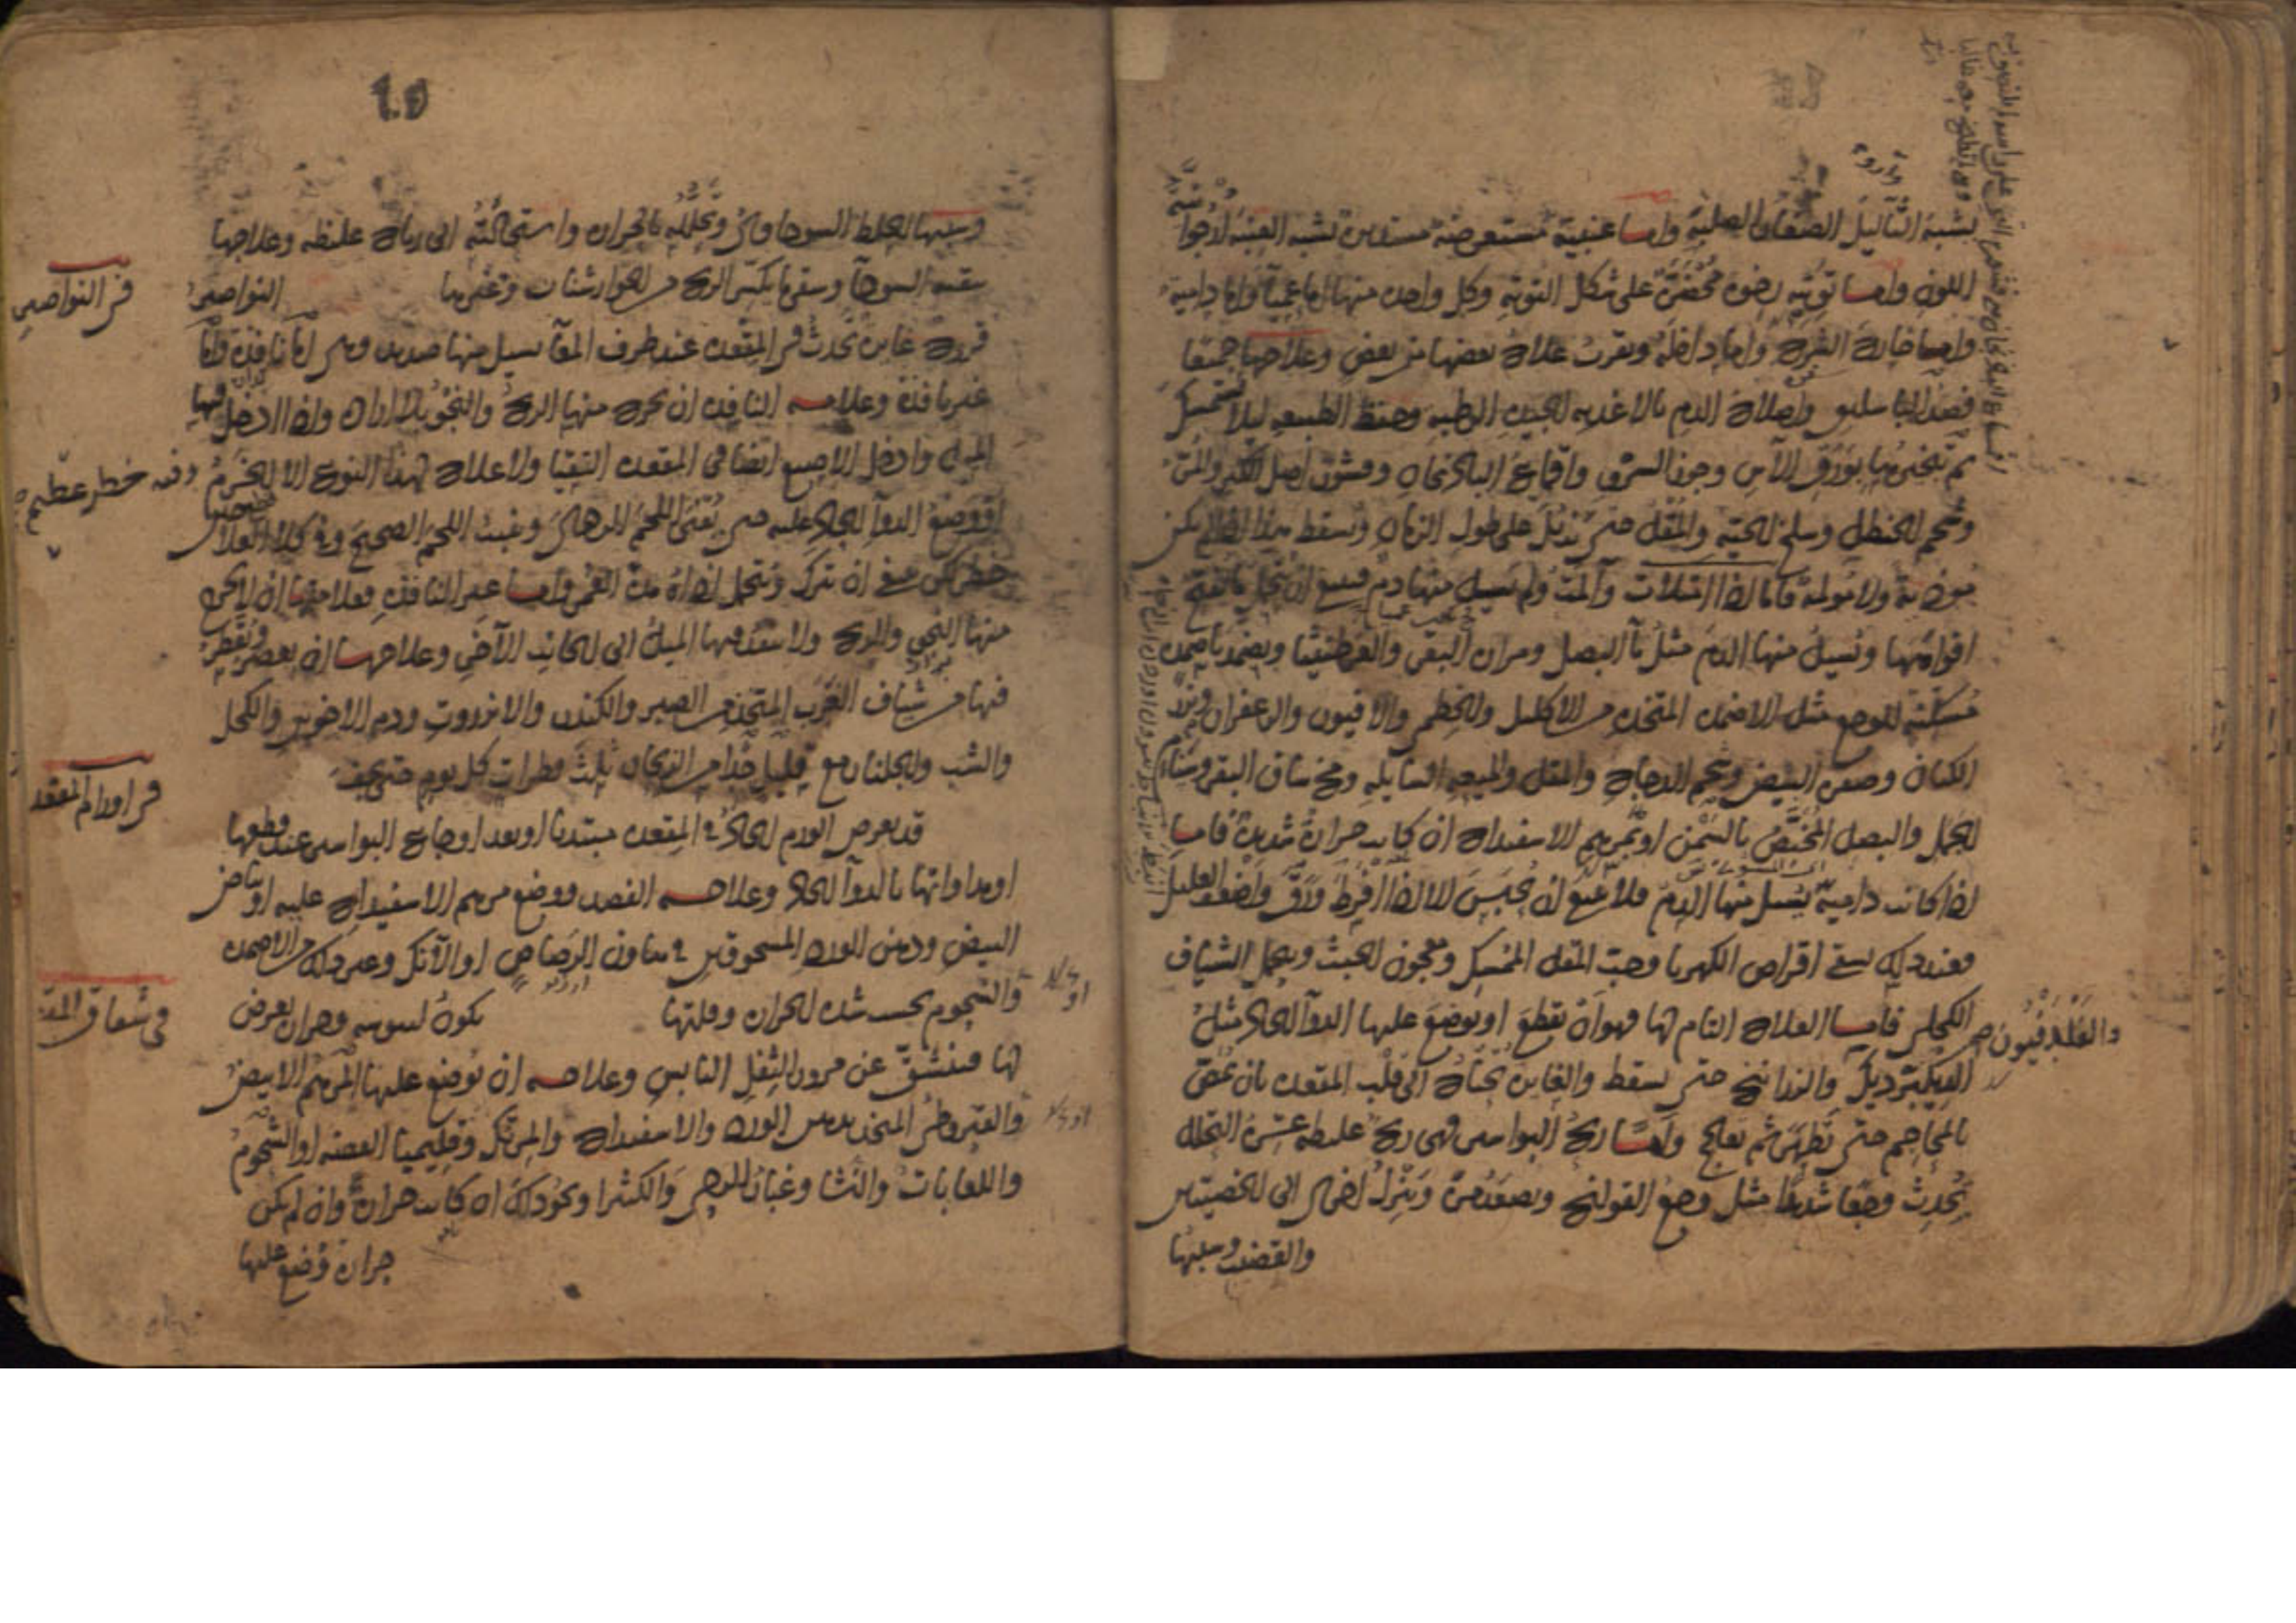 تشبه الثآليل الصغار الصلبة واما عنبية مستعرضة مستديرة تشبه العنبة ارجوانية
اللون واما توتية رخوة على شكل التوتة وكل واحدة منها اما عمياء واما دامية
واما خارج الشرج واما داخله ويقرب علاج بعضها من بعض وعلاجها جميعا
فصد الباسليق واصلاح الدم بالاغذيه الجيدة الرطبه وحفظ الطبيعه لئلا تستمسك
ثم تبخيرها بورق الآس وجوز السرو واقماع الباذنجان وقشور اصل الكبر
وشحم الحنظل وسلخ الحية والمقل حتى تذبل على طول الزمان وتسقط هذا اذا لم تكن
موذية ولا مولمة فاما اذا امتلات وآلمت ولم يسيل منها دم فينبغي ان
افواهها ويسيل منها الدم مثل ماء البصل ومرارة البقر ويضمد باضمدة
مسكنة للوجع مثل الاضمدة المتخذة من الاكليل والخطمي والافيون والزعفران وبزر
الكتان وصفرة البيض وشحم الدجاج والمقل والميعه السايله ومخ ساق البقر وسنام
الجمل والبصل بالسمن او بمرهم الاسفيداج ان كانت حرارة شديدة فاما
اذا كانت دامية يسيل منها الدم فلا ينبغي ان يحبس الا اذا افرط ورق واضعف العليل
وعند ذلك يسقى اقراص الكهربا وحب المقل الممسك ومعجون الخبث ويحمل الشياف
الكحلي فاما العلاج التام لها فهو ان تقطع او يوضع عليها الدوآ الحاد مثل
والفلدفيون
الديكبرديك والزرانيخ حتى يسقط والغايرة تحتاج الى قلب المقعدة بان تمص
بالمحاجم حتى تظهر ثم تعالج واما ريح البواسير فهي ريح غليظه عسرة التحلل
تحدث وجعا شديدا مثل وجع القولنج ويصعد مرة وينزل اخرى الى الخصيتين
والقضيب وسببها
٦٠٥
وسببها الخلط السوداوي وتحلله بالحرارة واستحالته الى رياح غليظه وعلاجها
تنقيه السودآ وسقي ما يكسر الريح من الجوارشنات وغيرها النواصير
في النواصير
قروح غايرة تحدث في المقعدة عند طرف المعآ يسيل منها صديد وهي اما نافذة واما
غير نافذة وعلامه النافذه ان يخرج منها الريح والنجو بلا ارادة واذا ادخل فيها
الميل وادخل الاصبع ايضا في المقعدة التقيا ولا علاج لهذا النوع الا الخزم
وفيه خطر عظيم
او وضع الدوآ الحاد عليه حتى يفنى اللحم الردي وينبت اللحم الصحيح وفي كلا العلاجين
خطر لكن ينبغي ان تترك وتتحمل اذاه مدة العمر واما غير النافذه فعلامتها ان لا يخرج
منها النجو والريح ولا ينفذ فيها الميل الى الجانب الآخر وعلاجها ان تعصر ويقطر
فيها من شياف الغرب المتخذ من الصبر والكندر والانزروت ودم الاخوين والكحل
والشب والجلنار مع قليل جدا من الزنجار ثلث قطرات كل يوم حتى يجف
في اورام المقعد
قد يعرض الورم الحاد في المقعدة مبتديا او بعد اوجاع البواسير عند قطعها
او مداواتها بالدوآ الحاد وعلاجه الفصد ووضع مرهم الاسفيداج عليه او بياض
البيض ودهن الورد المسحوقين في هاون الرصاص او الآنك وغير ذلك من الاضمدة
والشحوم بحسب شدة الحرارة وقلتها يكون ليبوسه وحرارة يعرض
في شقاق المقعد
لها فتنشق عن مرور الثفل اليابس وعلاجه ان يوضع عليها المرهم الابيض
والقيروطي المتخذ بدهن الورد والاسفيداج والمرتك وقليميا الفضه او الشحوم
واللعابات والنشا وغبار الرحى والكثيرا ونحو ذلك ان كانت حرارة وان لم يكن
حرارة وضع عليها